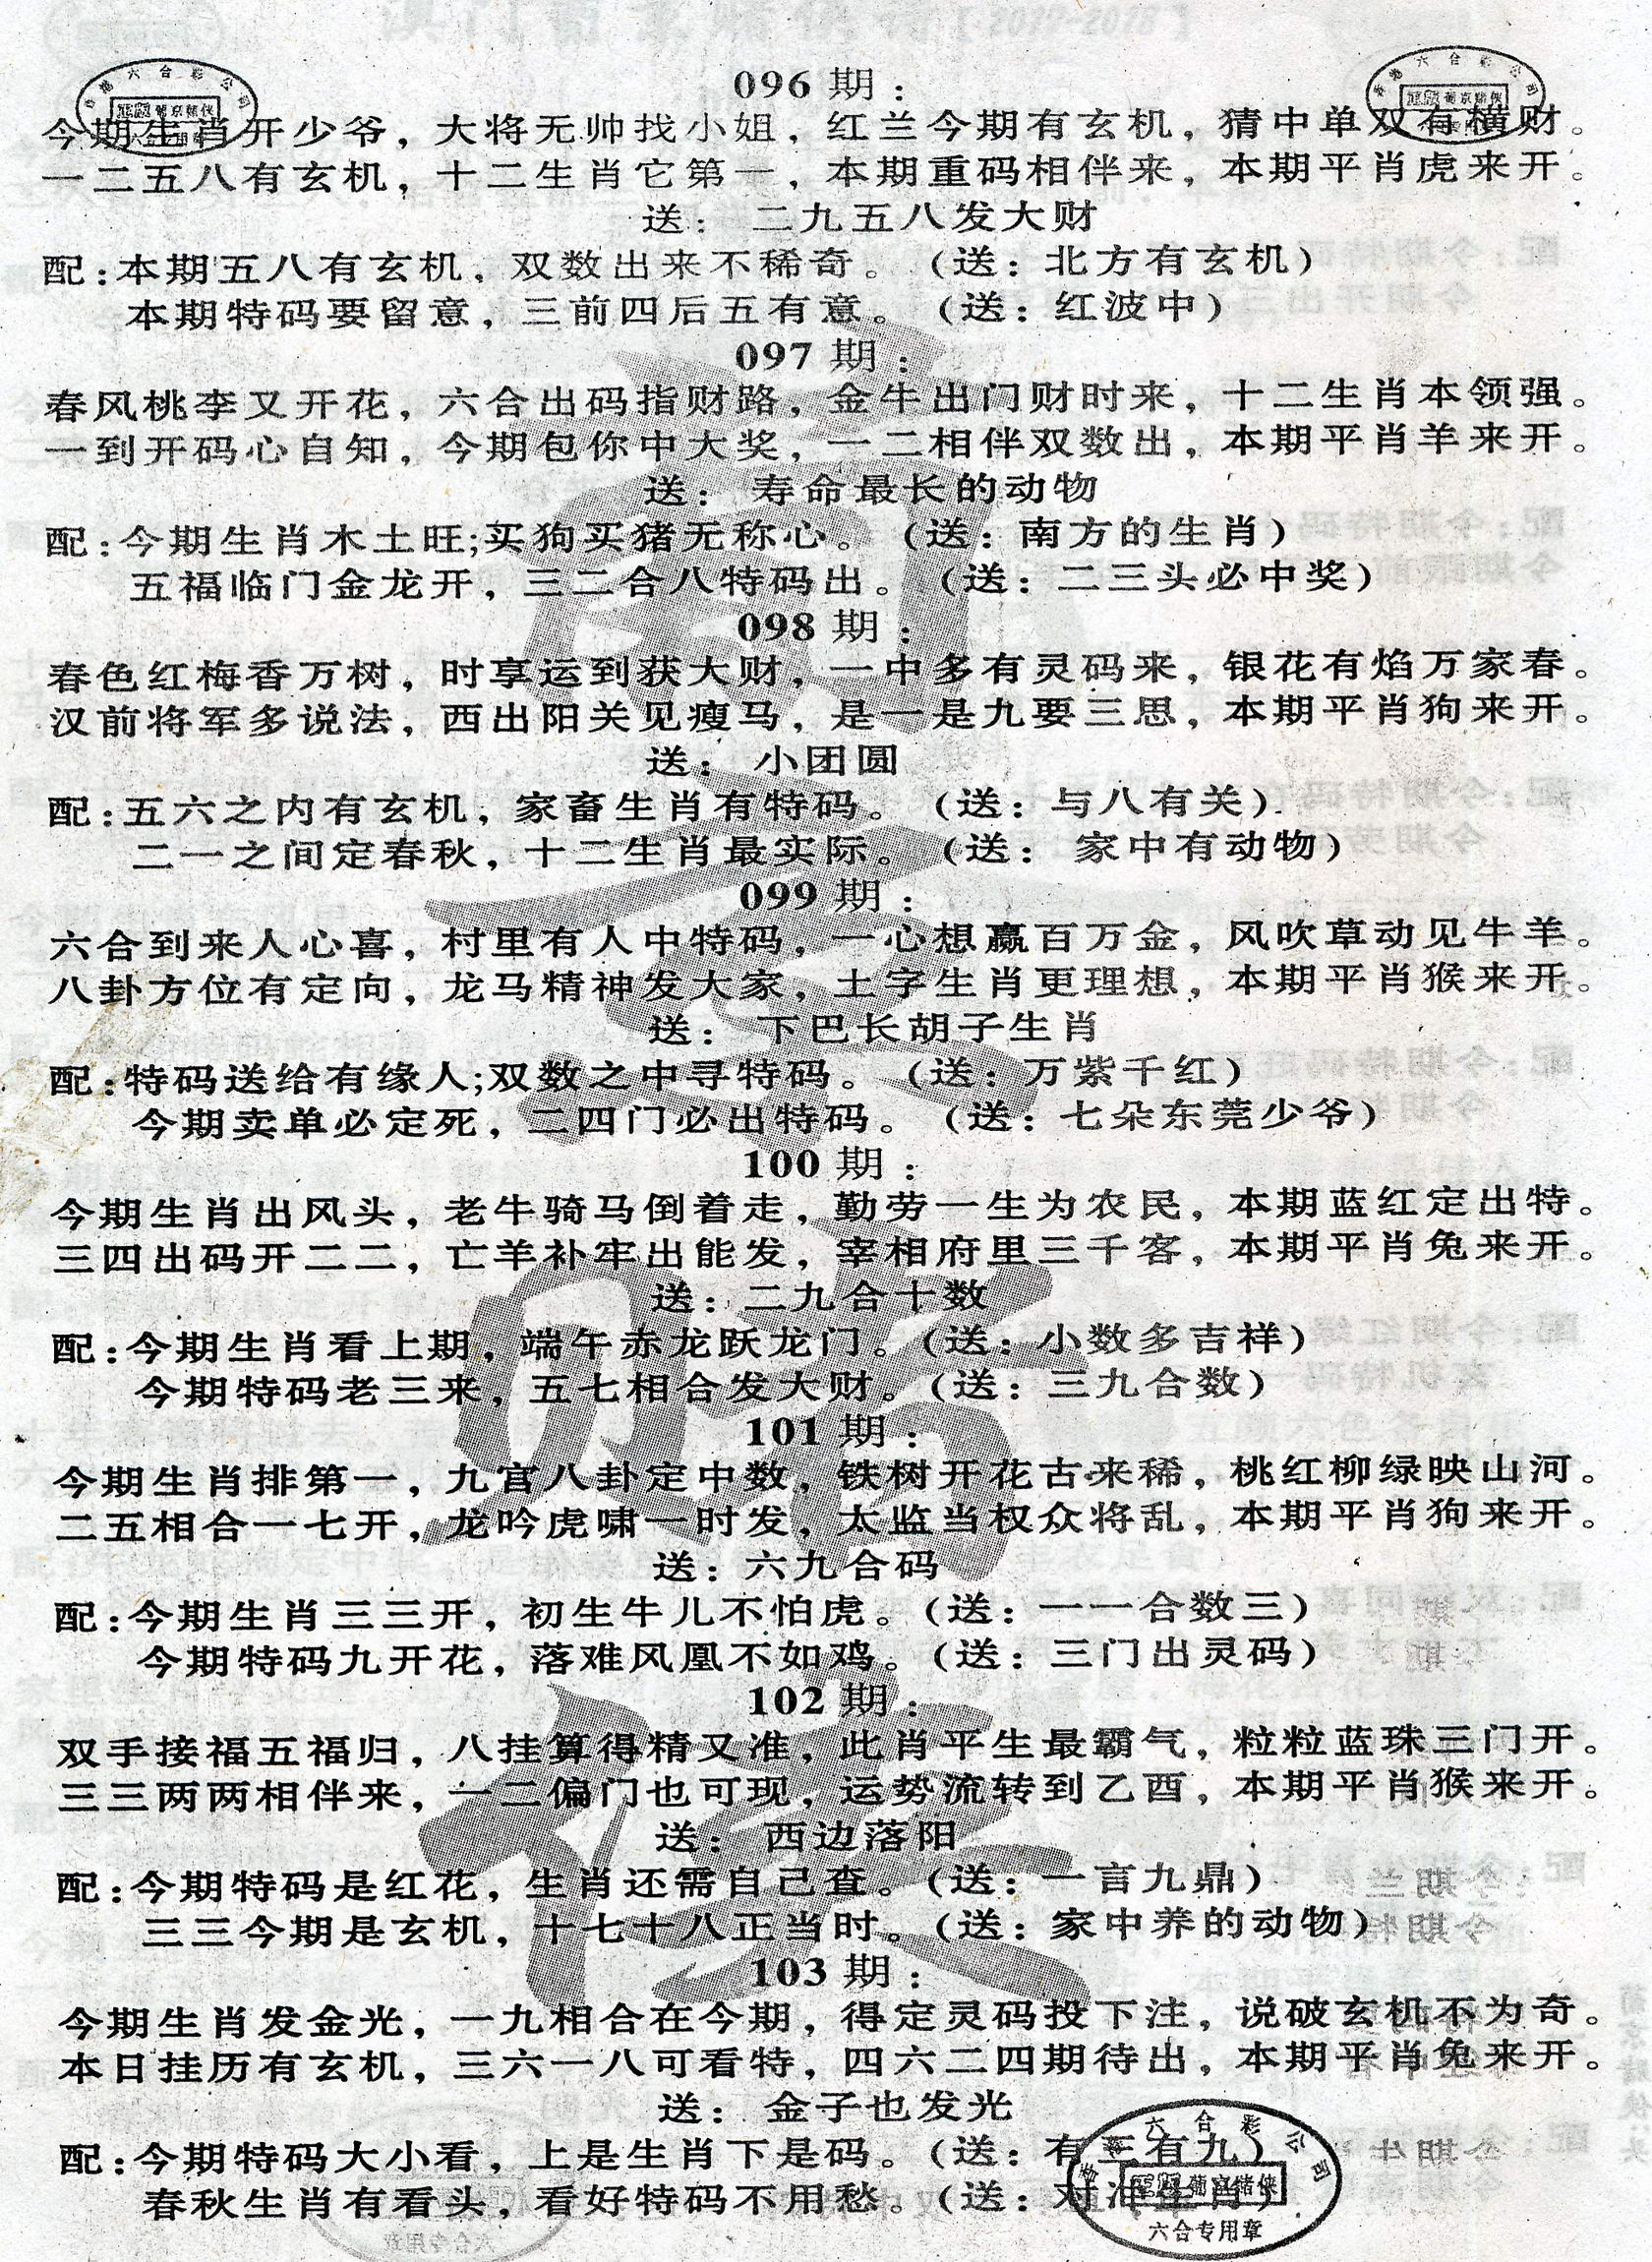 096 期：
今期生肖开少爷，大将无帅找小姐，红兰今期有玄机，猜中单双有横财。
一二五八有玄机，十二生肖它第一，本期重码相伴来，本期平肖虎来开。
送：二九五八发大财
配：本期五八有玄机，双数出来不稀奇。（送：北方有玄机）
本期特码要留意，三前四后五有意。（送：红波中）
097 期：
春风桃李又开花，六合出码指财路，金牛出门财时来，十二生肖本领强。
一到开码心自知，今期包你中大奖，一二相伴双数出，本期平肖羊来开。
送：寿命最长的动物
配：今期生肖木土旺;买狗买猪无称心。（送：南方的生肖）
五福临门金龙开，三二合八特码出。（送：二三头必中奖）
098 期：
春色红梅香万树，时享运到获大财，一中多有灵码来，银花有焰万家春。
汉前将军多说法，西出阳关见瘦马，是一是九要三思，本期平肖狗来开。
送：小团圆
配：五六之内有玄机，家畜生肖有特码。（送：与八有关）
二一之间定春秋，十二生肖最实际。（送：家中有动物）
099 期：
六合到来人心喜，村里有人中特码，一心想赢百万金，风吹草动见牛羊。
八卦方位有定向，龙马精神发大家，土字生肖更理想，本期平肖猴来开。
送：下巴长胡子生肖
配：特码送给有缘人;双数之中寻特码。（送：万紫千红）
今期卖单必定死，二四门必出特码。（送：七朵东莞少爷）
100 期：
今期生肖出风头，老牛骑马倒着走，勤劳一生为农民，本期蓝红定出特。
三四出码开二二，亡羊补牢出能发，宰相府里三千客，本期平肖兔来开。
送：二九合十数
配：今期生肖看上期，端午赤龙跃龙门。（送：小数多吉祥）
今期特码老三来，五七相合发大财。（送：三九合数）
101 期：
今期生肖排第一，九宫八卦定中数，铁树开花古来稀，桃红柳绿映山河。
二五相合一七开，龙吟虎啸一时发，太监当权众将乱，本期平肖狗来开。
送：六九合码
配：今期生肖三三开，初生牛儿不怕虎。（送：一一合数三）
今期特码九开花，落难风凰不如鸡。（送：三门出灵码）
102 期：
双手接福五福归，八挂算得精又准，此肖平生最霸气，粒粒蓝珠三门开。
三三两两相伴来，一二偏门也可现，运势流转到乙酉，本期平肖猴来开。
送：西边落阳
配：今期特码是红花，生肖还需自己查。（送：一言九鼎）
三三今期是玄机，十七十八正当时。（送：家中养的动物）
103 期：
今期生肖发金光，一九相合在今期，得定灵码投下注，说破玄机不为奇。
本日挂历有玄机，三六一八可看特，四六二四期待出，本期平肖兔来开。
送：金子也发光
配：今期特码大小看，上是生肖下是码。（送：有三有九）
春秋生肖有看头，看好特码不用愁。（送：对冲生肖）
六合彩公司
葡京赌侠
六合专用章